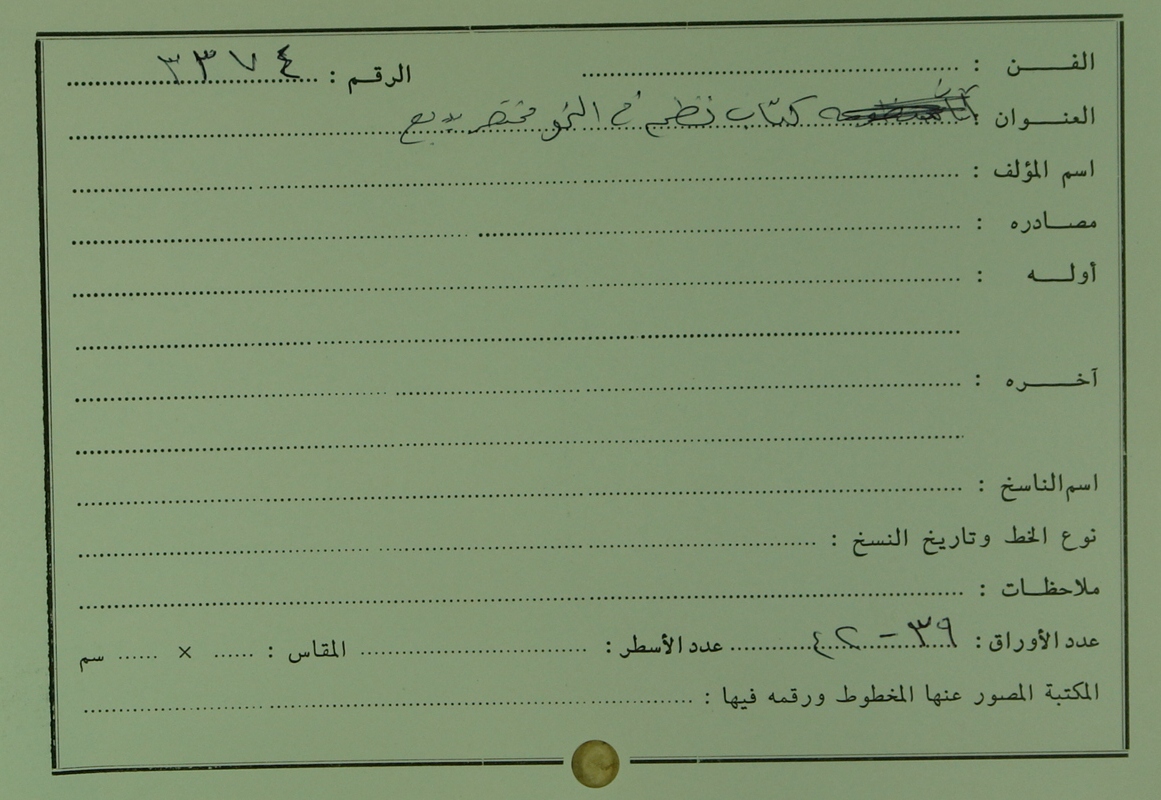 الفـــن : الرقم : ٣٣٧٤
العنـوان : كتاب نظم في النحو مختصر بديع
اسم المؤلف :
مصـادره :
أولـــه :
آخـــره :
اسم الناسخ :
نوع الخط وتاريخ النسخ :
ملاحظـات :
عدد الأوراق : ٣٩ - ٤٢ عدد الأسطر : المقاس : × سم
المكتبة المصور عنها المخطوط ورقمه فيها :